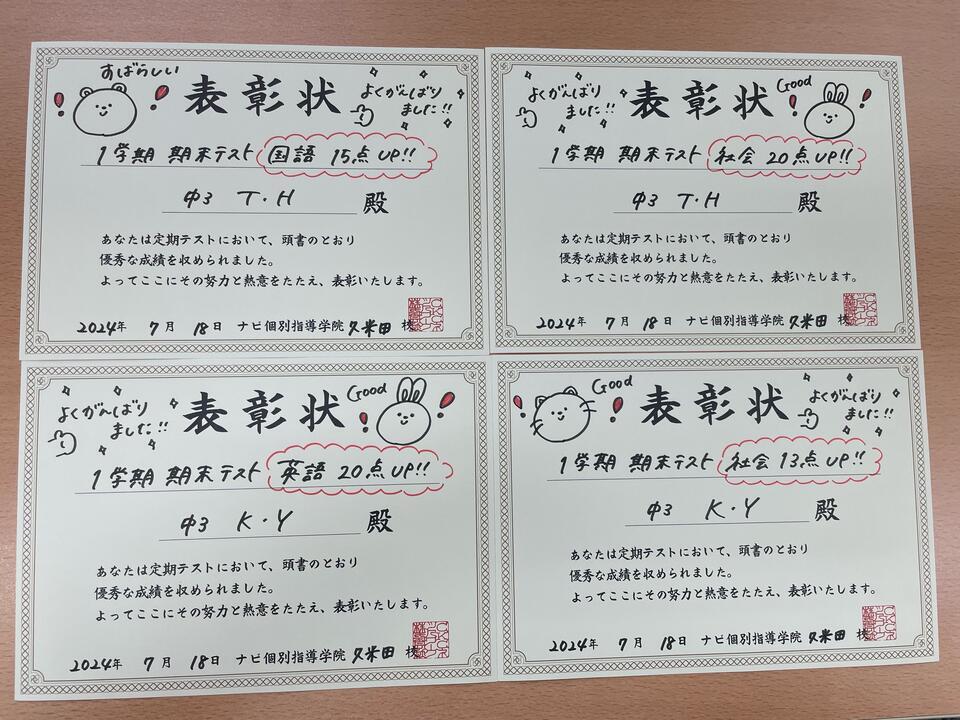 すばらしい
表彰状
よくがんばり
ました!!
1学期 期末テスト 国語 15点UP!!
中3 T・H 殿
あなたは定期テストにおいて、頭書のとおり
優秀な成績を収められました。
よってここにその努力と熱意をたたえ、表彰いたします。
2024年 7月 18日 ナビ個別指導学院 久米田 校
よくがんばり
ました!!
表彰状
Good
1学期 期末テスト 社会 20点UP!!
中3 T・H 殿
あなたは定期テストにおいて、頭書のとおり
優秀な成績を収められました。
よってここにその努力と熱意をたたえ、表彰いたします。
2024年 7月 18日 ナビ個別指導学院 久米田 校
よくがんばり
ました!!
表彰状
Good
1学期 期末テスト 英語 20点UP!!
中3 K・Y 殿
あなたは定期テストにおいて、頭書のとおり
優秀な成績を収められました。
よってここにその努力と熱意をたたえ、表彰いたします。
2024年 7月 18日 ナビ個別指導学院 久米田 校
Good
表彰状
よくがんばり
ました!!
1学期 期末テスト 社会 13点UP!!
中3 K・Y 殿
あなたは定期テストにおいて、頭書のとおり
優秀な成績を収められました。
よってここにその努力と熱意をたたえ、表彰いたします。
2024年 7月 18日 ナビ個別指導学院 久米田 校